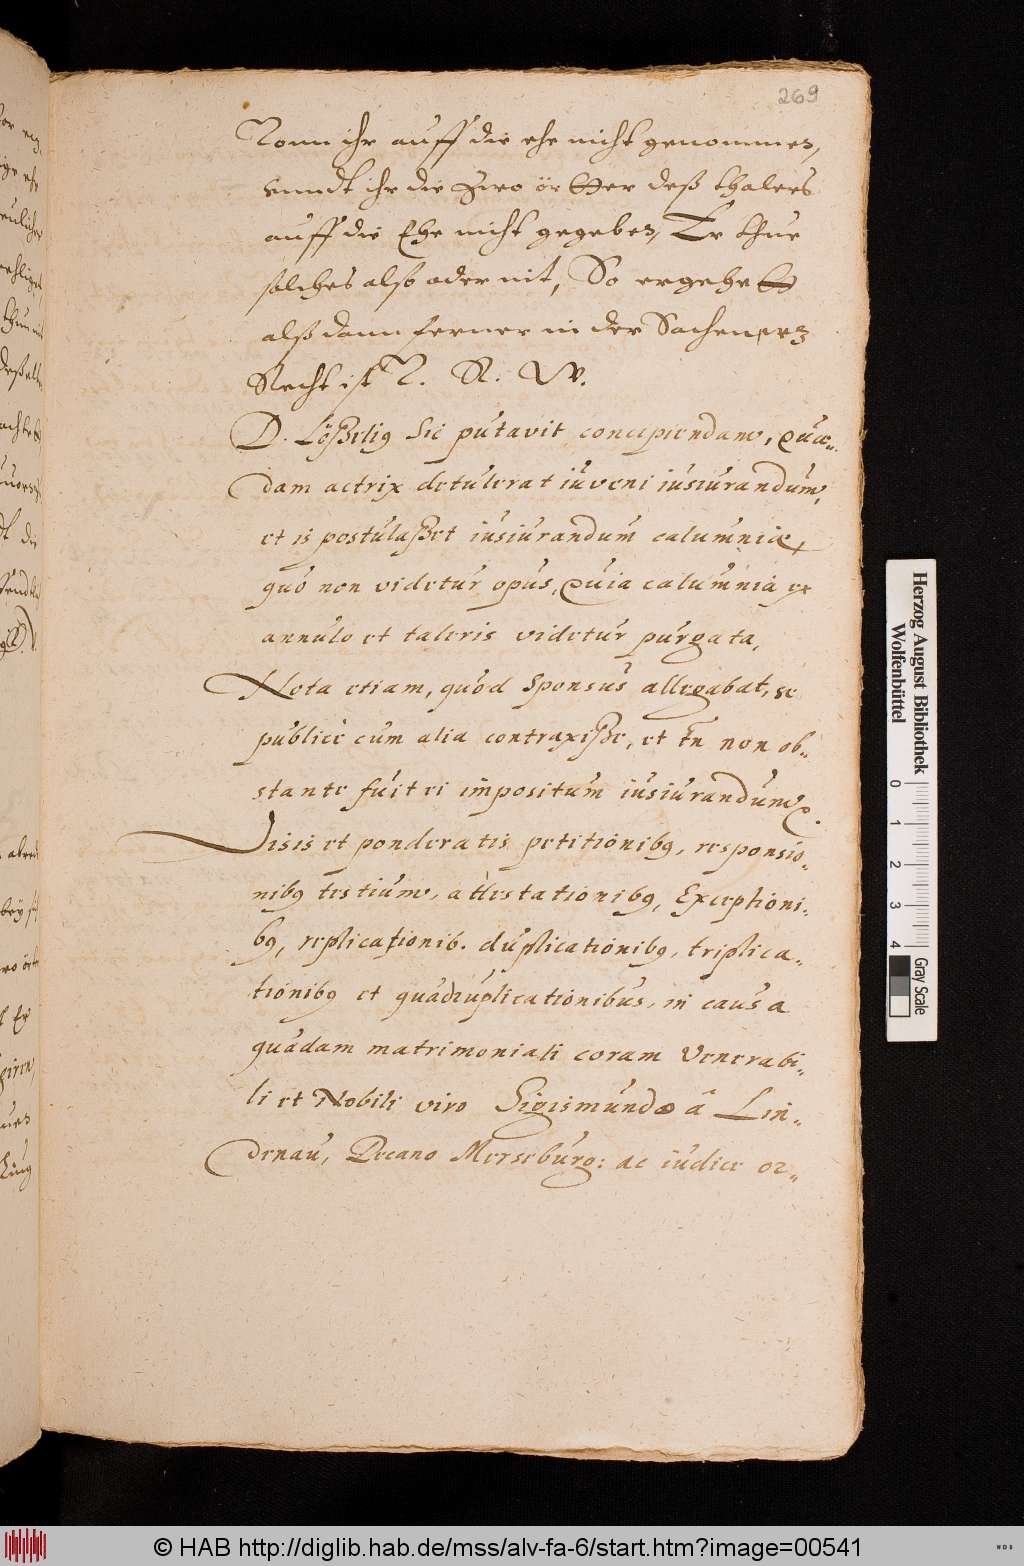 269
Vonn ihr auff die ehe nicht genommen,
unndt ihr die zwo örtter deß thalers
auff die Ehe nicht gegeben, Er thue
solches also oder nit, So ergehett
alß dann ferner in der Sachen, was
Recht ist V. R. W.
D. Lößelig sic putavit concipiendam, Quæ-
dam actrix detulerat iuveni iusiurandum,
et is postulaßet iusiurandum calumniæ,
quo non videtur opus, Quia calumnia ex
annulo et taleris videtur purgata,
Nota etiam, quod Sponsus allegabat, se
publicè cum alia contraxiße, et tn̄ non ob-
stante fuit ei impositum iusiurandum.
Visis et ponderatis petitionibq, responsio-
nibq testium, attestationibq, Exceptioni-
bq, replicationib. duplicationibq, triplica-
tionibq et quadruplicationibus, in causa
quadam matrimoniali coram Venerabi-
li et Nobili viro Sigismundo â Lin-
denau, Decano Merseburg: ac iudice or-
Herzog August Bibliothek
Wolfenbüttel
0 1 2 3 4
Gray Scale
© HAB http://diglib.hab.de/mss/alv-fa-6/start.htm?image=00541